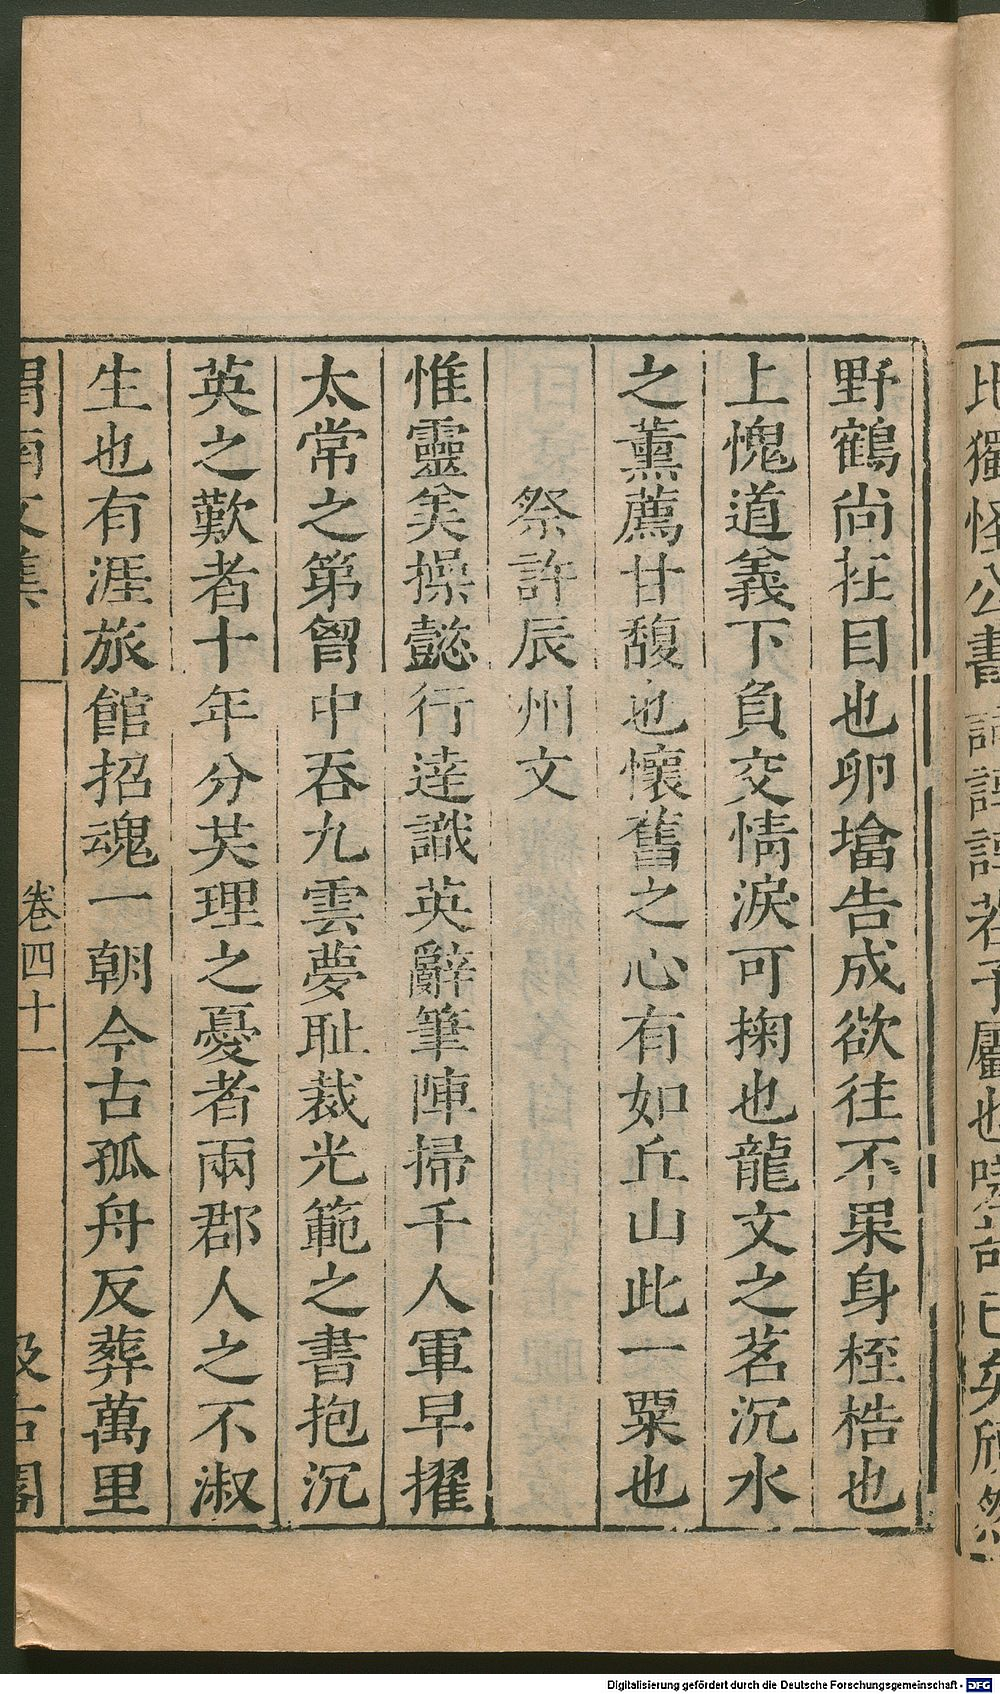 野鶴尚在目也卵塔告成欲往不果身桎梏也
上愧道義下負交情淚可掬也龍文之茗沉水
之薰薦甘馥也懷舊之心有如丘山此一粟也
祭許辰州文
惟靈美操懿行達識英辭筆陣掃千人軍早擢
太常之第胷中吞九雲夢耻裁光範之書抱沉
英之歎者十年分芙理之憂者兩郡人之不淑
生也有涯旅館招魂一朝今古孤舟反葬萬里
渭南文集 卷四十一 汲古閣
Digitalisierung gefördert durch die Deutsche Forschungsgemeinschaft - DFG